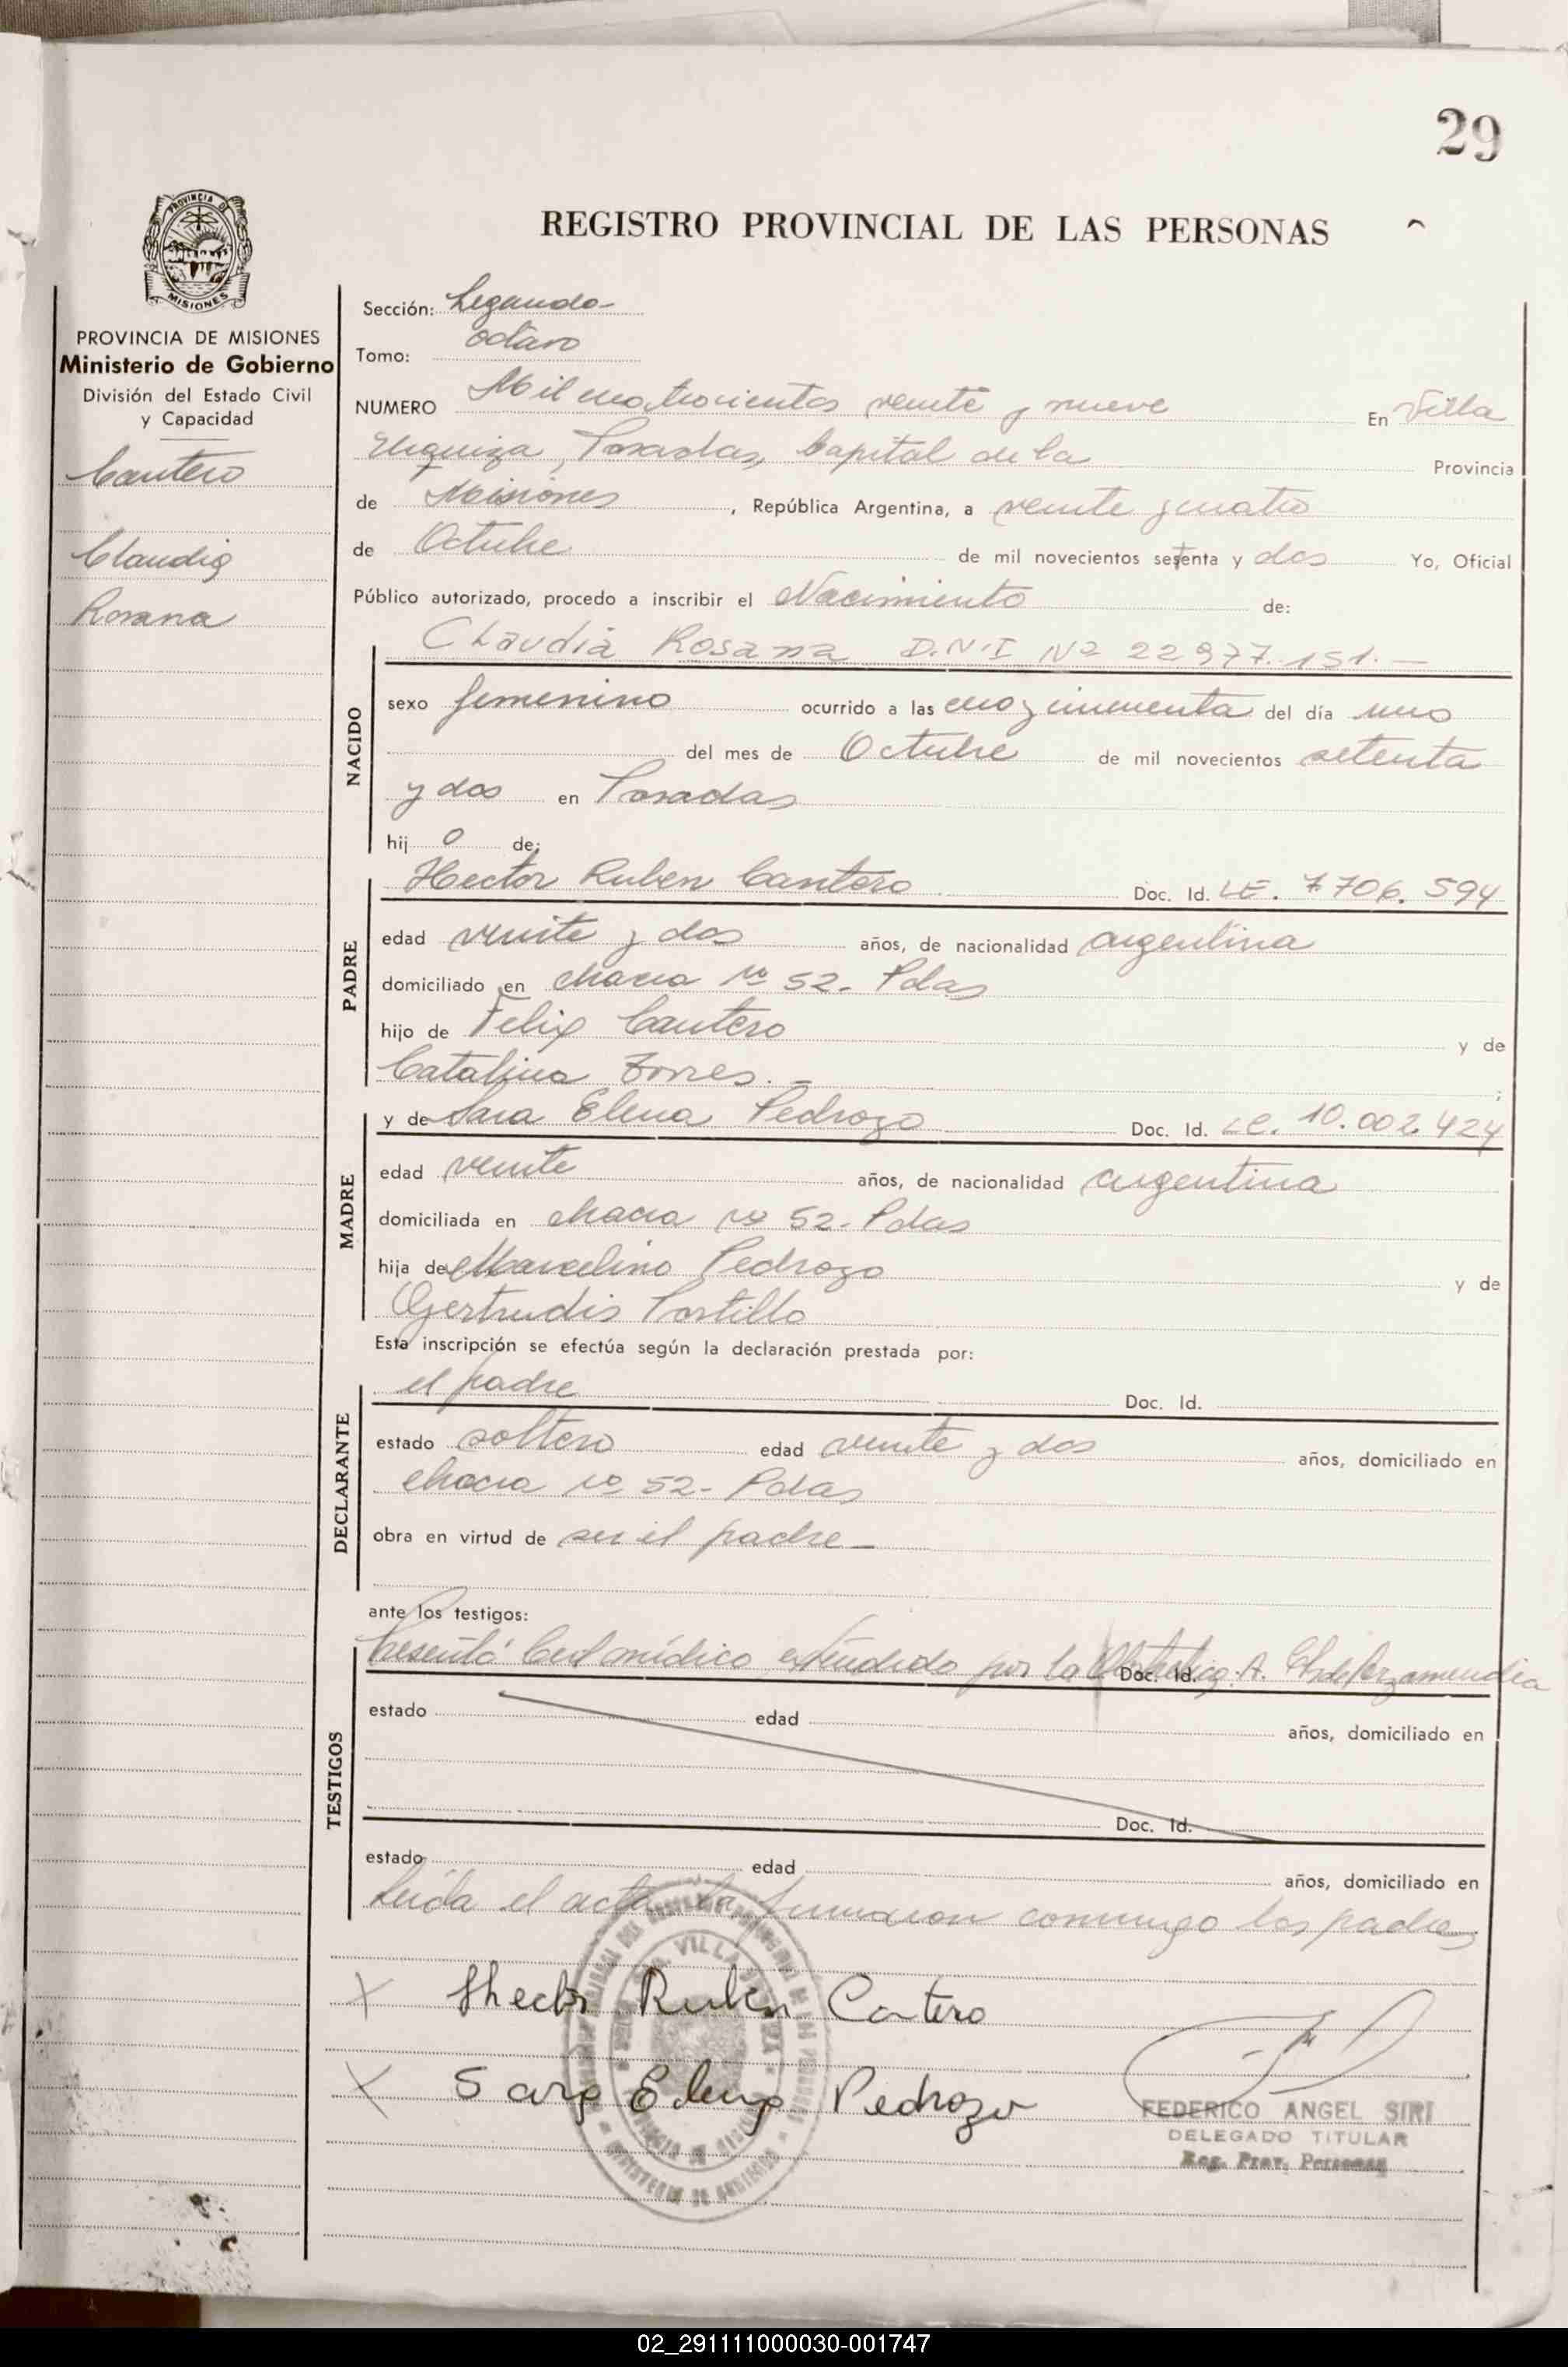 29
REGISTRO PROVINCIAL DE LAS PERSONAS
PROVINCIA DE MISIONES
Ministerio de Gobierno
División del Estado Civil
y Capacidad
Cantero
Claudia
Rosana
Sección: Segunda
Tomo: octavo
NUMERO Mil cuatrocientos veinte y nueve En Villa
Urquiza, Posadas, Capital de la Provincia
de Misiones, República Argentina, a veinte y cuatro
de Octubre de mil novecientos setenta y dos Yo, Oficial
Público autorizado, procedo a inscribir el Nacimiento de:
NACIDO
Claudia Rosana D.N.I Nº 22.977.151.—
sexo femenino ocurrido a las y cincuenta del día uno
del mes de Octubre de mil novecientos setenta
y dos en Posadas
hij o de:
PADRE
Hector Ruben Cantero Doc. Id. LE. 7.706.594
edad veinte y dos años, de nacionalidad argentina
domiciliado en chacra nº 52- Pdas
hijo de Felix Cantero y de
Catalina Torres.-
MADRE
y de Sara Elena Pedrozo Doc. Id. LC. 10.002.424
edad veinte años, de nacionalidad argentina
domiciliada en chacra nº 52- Pdas
hija de Marcelino Pedrozo y de
Gertrudis Portillo
Esta inscripción se efectúa según la declaración prestada por:
DECLARANTE
el padre Doc. Id.
estado soltero edad veinte y dos años, domiciliado en
chacra nº 52- Pdas
obra en virtud de ser el padre—
ante los testigos:
TESTIGOS
Presentó Cert médico extendido por la Obstetrica A. Doc. Id.
estado edad años, domiciliado en
Doc. Id.
estado edad años, domiciliado en
Leida el acta la firmaron conmigo los padres
X Hector Ruben Cantero
X Sara Elena Pedrozo
FEDERICO ANGEL SIRI
DELEGADO TITULAR
Reg. Prov. Personas
02_291111000030-001747